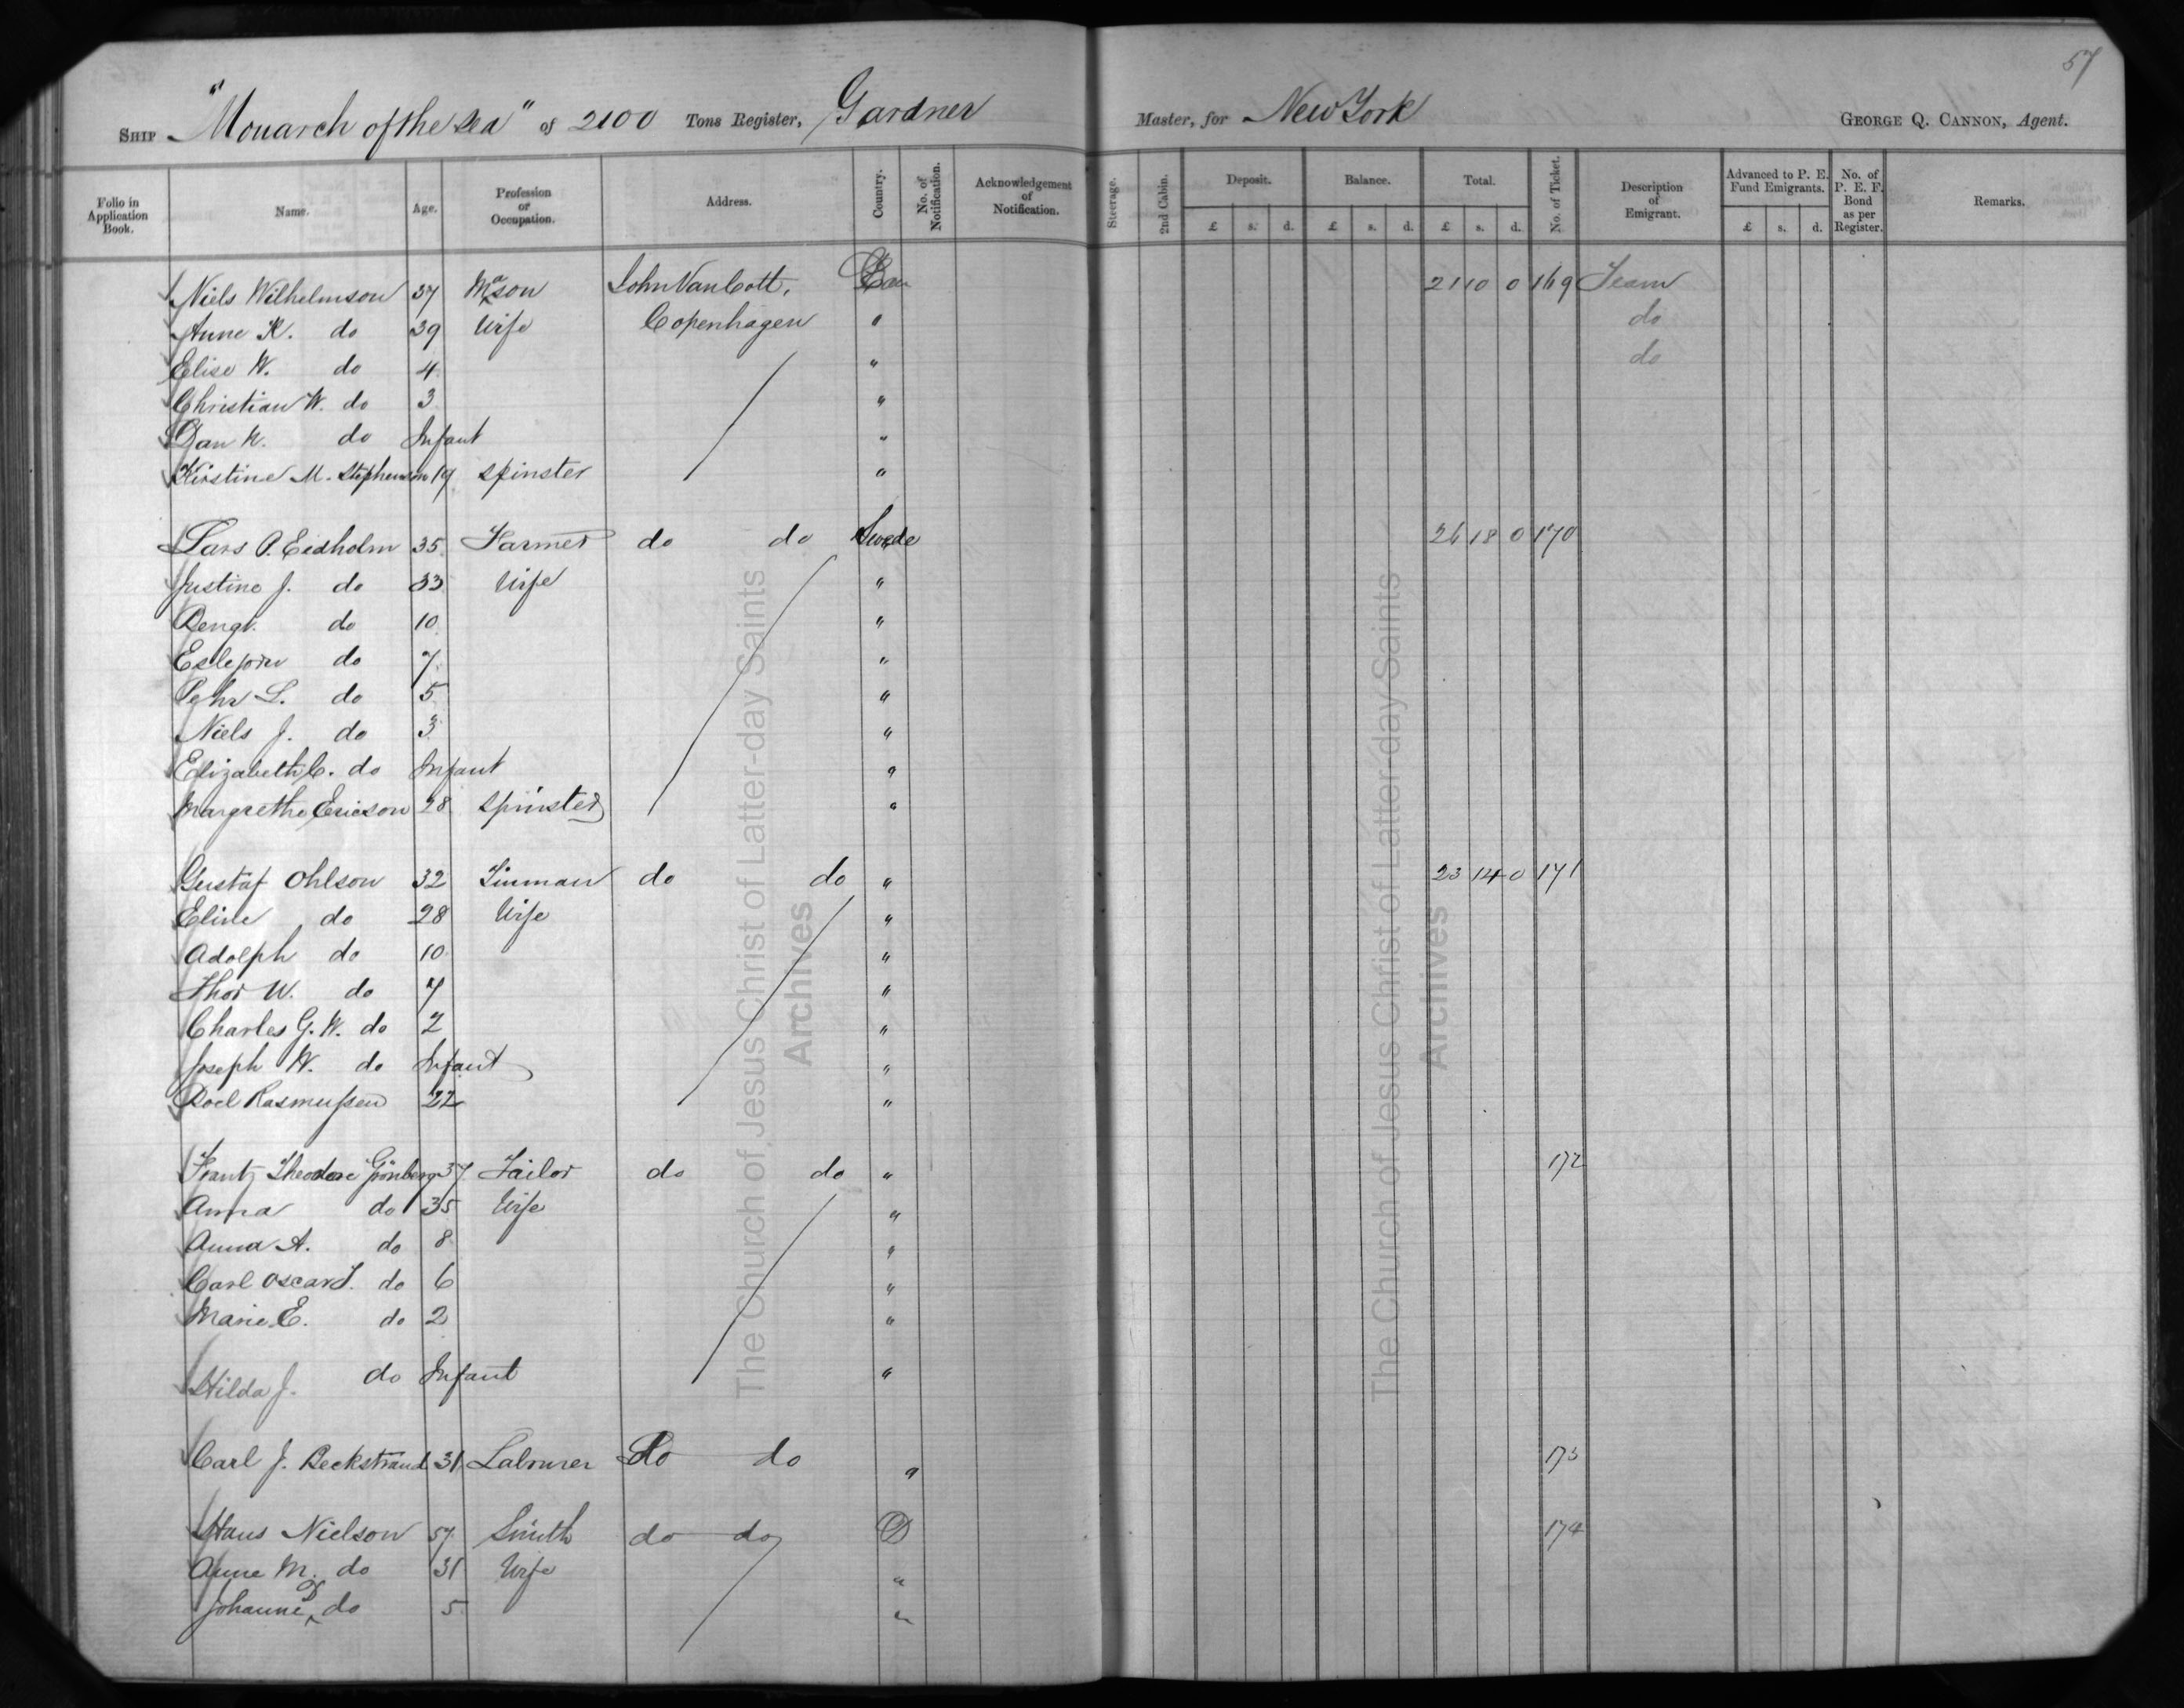 57
SHIP "Monarch of the Sea" of 2100 Tons Register, Gardner Master, for New York GEORGE Q. CANNON, Agent.
Folio in Application Book. Name. Age. Profession or Occupation. Address. Country. No. of Notification. Acknowledgement of Notification. Steerage. 2nd Cabin. Deposit. Balance. Total. No. of Ticket. Description of Emigrant. Advanced to P. E. Fund Emigrants. No. of P. E. F. Bond as per Register. Remarks.
£ s. d. £ s. d. £ s. d. £ s. d.
Niels Wilhelmson 37 Mason John Van Cott, Dan 21 10 0 169 Team
Anne K. do 39 Wife Copenhagen " do
Elise W. do 4 " do
Christian W. do 3 "
Dan W. do Infant "
Kirstine M. Stephenson 19 Spinster "
Lars P. Eidholm 35 Farmer do do Swede 26 18 0 170
Justine J. do 33 Wife "
Bengt do 10 "
do 7 "
Pehr L. do 5 "
Niels J. do 3 "
Elizabeth C. do Infant "
Margrethe Ericson 28 Spinster "
Gustaf Ohlson 32 Tinman do do " 23 14 0 171
Eline do 28 Wife "
Adolph do 10 "
Thor W. do 7 "
Charles G. W. do 2 "
Joseph W. do Infant "
Boel Rasmussen 22 "
Frantz Theodore Grönberg 37 Tailor do do " 172
Anna do 35 Wife "
Anna A. do 8 "
Carl Oscar T. do 6 "
Marie E. do 2 "
Hilda J. do Infant "
Carl J. Beckstrand 31 Labourer Do do " 173
Hans Nielson 57 Smith do do D 174
Anne M. do 31 Wife "
Johanne D do 5 "
The Church of Jesus Christ of Latter-day Saints
Archives
The Church of Jesus Christ of Latter-day Saints
Archives